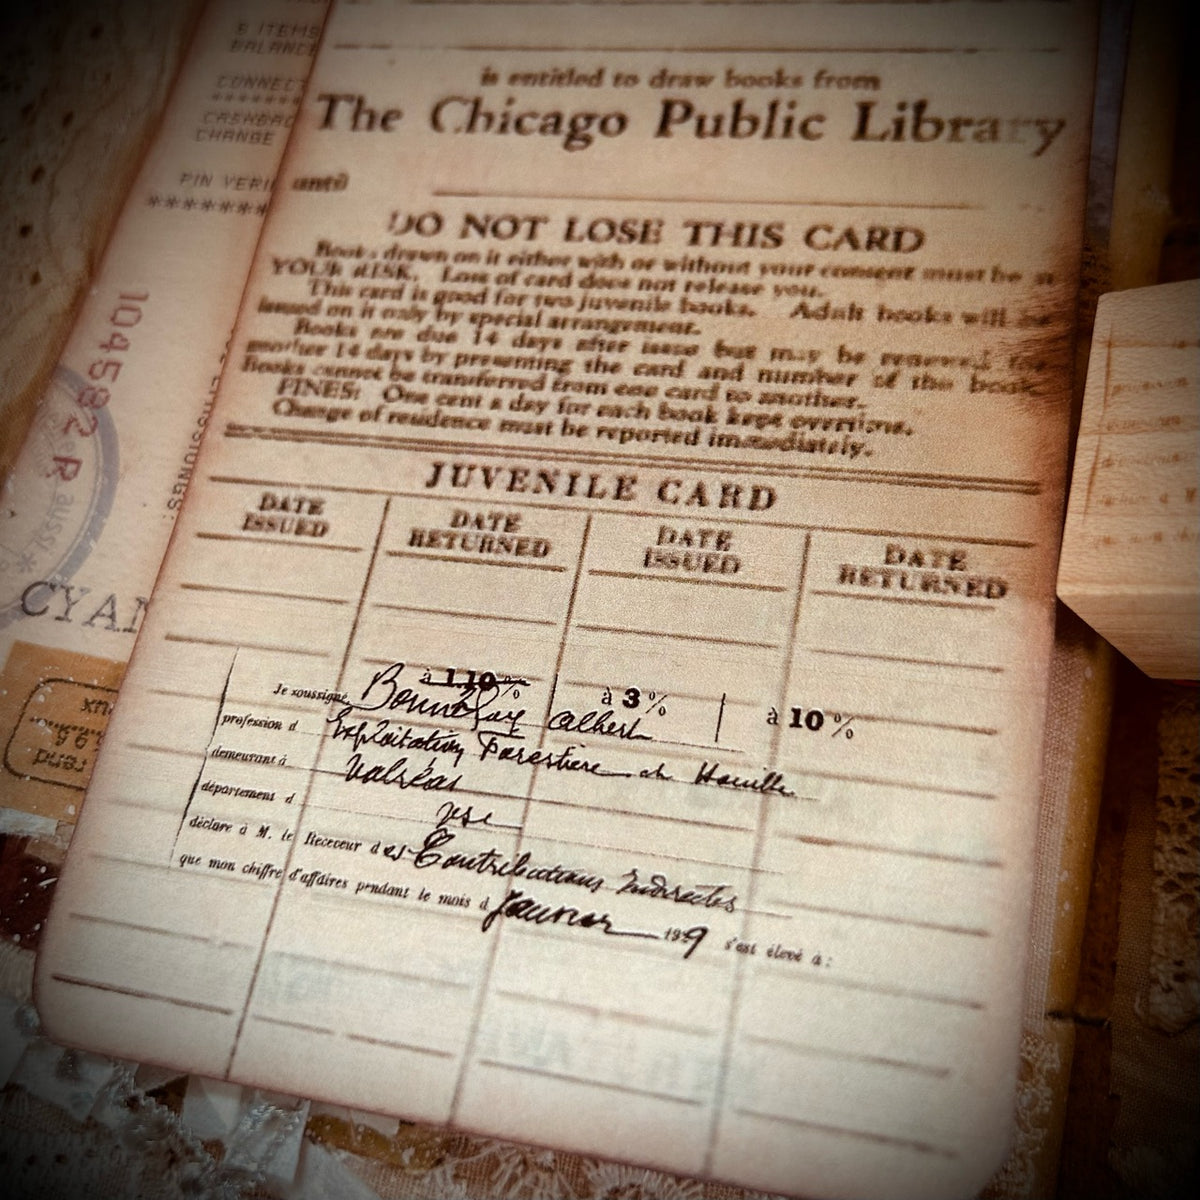 6 ITEMS
BALANCE
CONNECT
*******
CASHBAC
CHANGE
PIN VERI
*******
104582 R
aussi
CYAN
is entitled to draw books from
The Chicago Public Library
until
DO NOT LOSE THIS CARD
Books drawn on it either with or without your consent must be
YOUR RISK. Loss of card does not release you.
This card is good for two juvenile books. Adult books will be
issued on it only by special arrangement.
Books are due 14 days after issue but may be renewed for
another 14 days by presenting the card and number of the book.
Books cannot be transferred from one card to another.
FINES: One cent a day for each book kept overtime.
Change of residence must be reported immediately.
JUVENILE CARD
DATE ISSUED
DATE RETURNED
DATE ISSUED
DATE RETURNED
à 1.10 %
à 3 %
à 10 %
Je soussigné Albert
profession d Exploitation Forestière
demeurant à Valréas
département d
déclare à M. le Receveur des Contributions Indirectes
que mon chiffre d'affaires pendant le mois d Janvier 199 s'est élevé à :